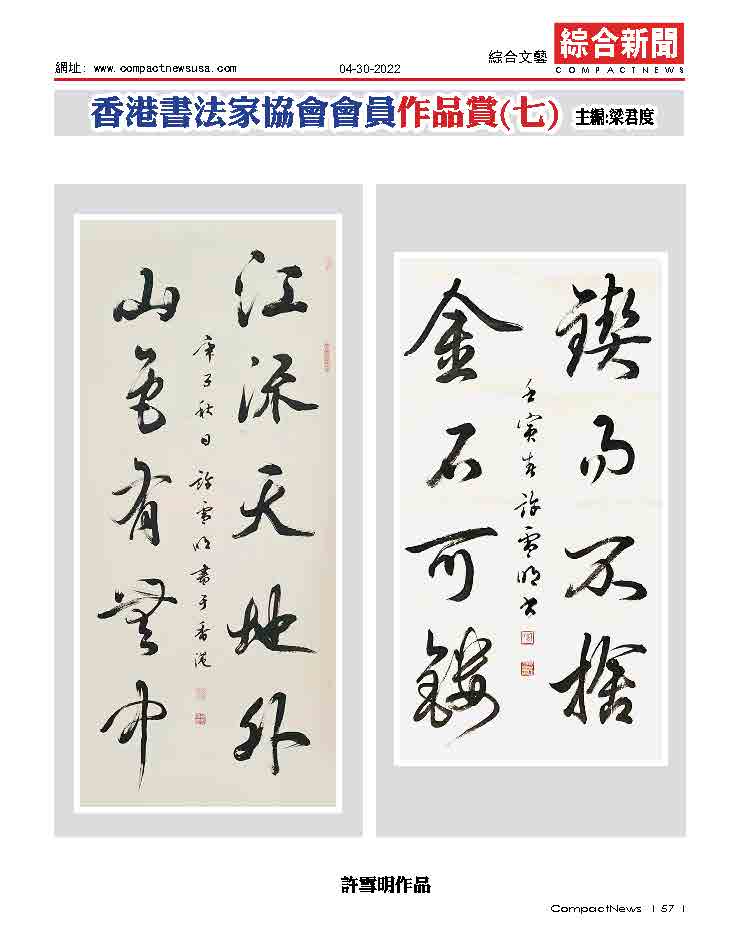 網址: www.compactnewsusa.com
04-30-2022
綜合文藝
綜合新聞
COMPACTNEWS
香港書法家協會會員作品賞(七) 主編:梁君度
江流天地外
山色有無中
庚子秋日 許雪明書于香港
鍥而不捨
金石可鏤
壬寅春許雪明書
許雪明作品
CompactNews | 57 |